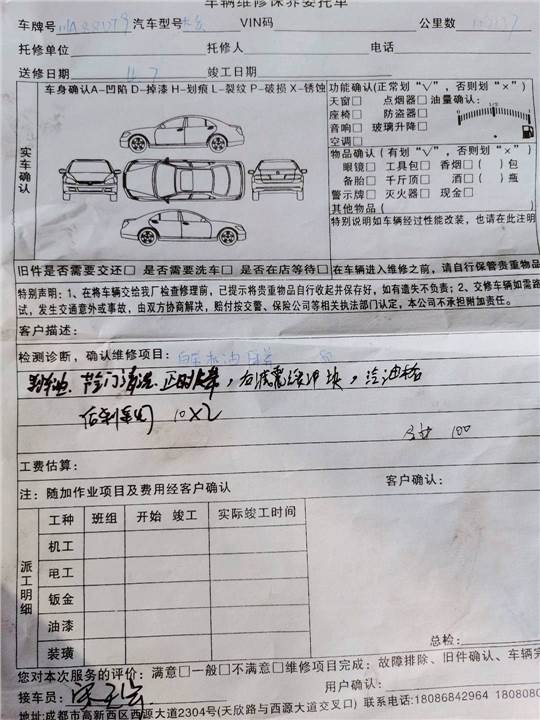 车辆维修保养委托单
车牌号 汽车型号 VIN码 公里数
托修单位 托修人 电话
送修日期 4.7 竣工日期
实车确认
车身确认A-凹陷 D-掉漆 H-划痕 L-裂纹 P-破损 X-锈蚀
功能确认(正常划“√”, 否则划“×”)
天窗□ 点烟器□ 油量确认:
座椅□ 防盗器□
音响□ 玻璃升降□
空调□
物品确认(有划“√”, 否则划“×”)
眼镜□ 工具包□ 香烟□( )包
备胎□ 千斤顶□ 酒□( )瓶
警示牌□ 灭火器□ 现金□
其他物品(
特别说明如车辆经过性能改装, 也请在此注明
旧件是否需要交还□ 是否需要洗车□ 是否在店等待□ 在车辆进入维修之前, 请自行保管贵重物品
特别声明: 1、在将车辆交给我厂检查修理前, 已提示将贵重物品自行收起并保存好, 如有遗失不负责; 2、交修车辆如需路
试, 发生交通意外或事故, 由双方协商解决, 赔付按交警、保险公司等相关执法部门认定, 本公司不承担附加责任。
客户描述:
检测诊断, 确认维修项目:
节气门清洗 正时火花, 右减震缓冲块, 汽油格
10×2
100
工费估算:
注: 随加作业项目及费用经客户确认 客户确认:
派工明细
工种 班组 开始 竣工 实际竣工时间
机工
电工
钣金
油漆
装璜
总检:
您对本次服务的评价: 满意□一般□不满意□维修项目完成: 故障排除、旧件确认、车辆完
接车员: 用户确认:
地址:成都市高新西区西源大道2304号(天欣路与西源大道交叉口) 联系电话:18086842964 180808